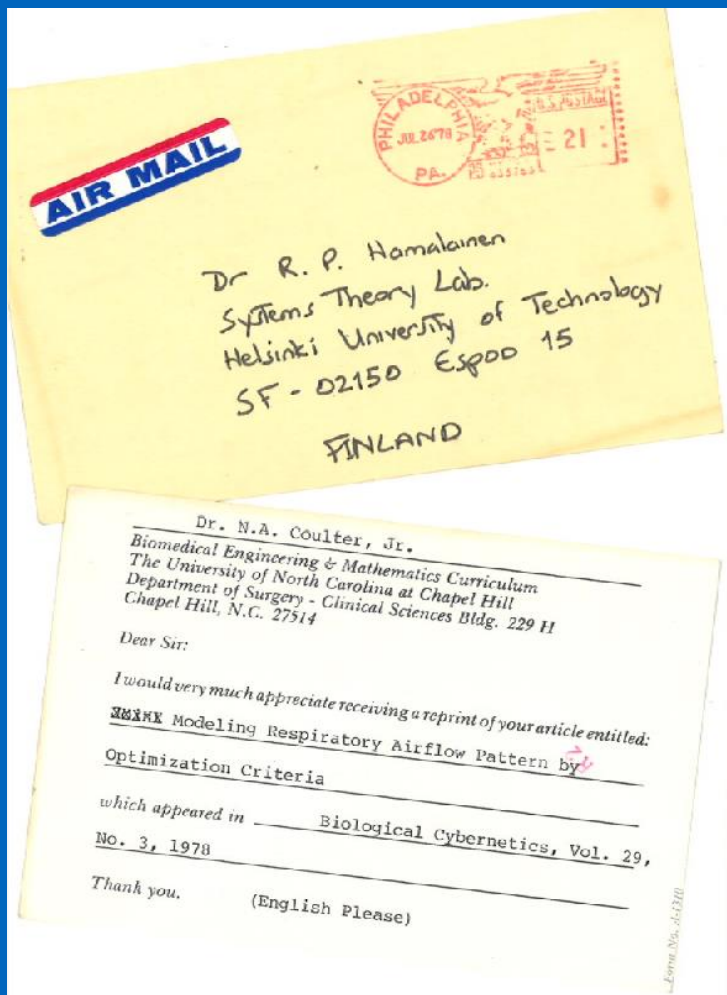 PHILADELPHIA
JUL 26 '78
PA.
U.S. POSTAGE
21
AIR MAIL
Dr R. P. Hamalainen
Systems Theory Lab.
Helsinki University of Technology
SF - 02150 Espoo 15
FINLAND
Dr. N.A. Coulter, Jr.
Biomedical Engineering & Mathematics Curriculum
The University of North Carolina at Chapel Hill
Department of Surgery - Clinical Sciences Bldg. 229 H
Chapel Hill, N.C. 27514
Dear Sir:
I would very much appreciate receiving a reprint of your article entitled:
Modeling Respiratory Airflow Pattern by
Optimization Criteria
which appeared in Biological Cybernetics, Vol. 29,
No. 3, 1978
Thank you. (English Please)
Form No.